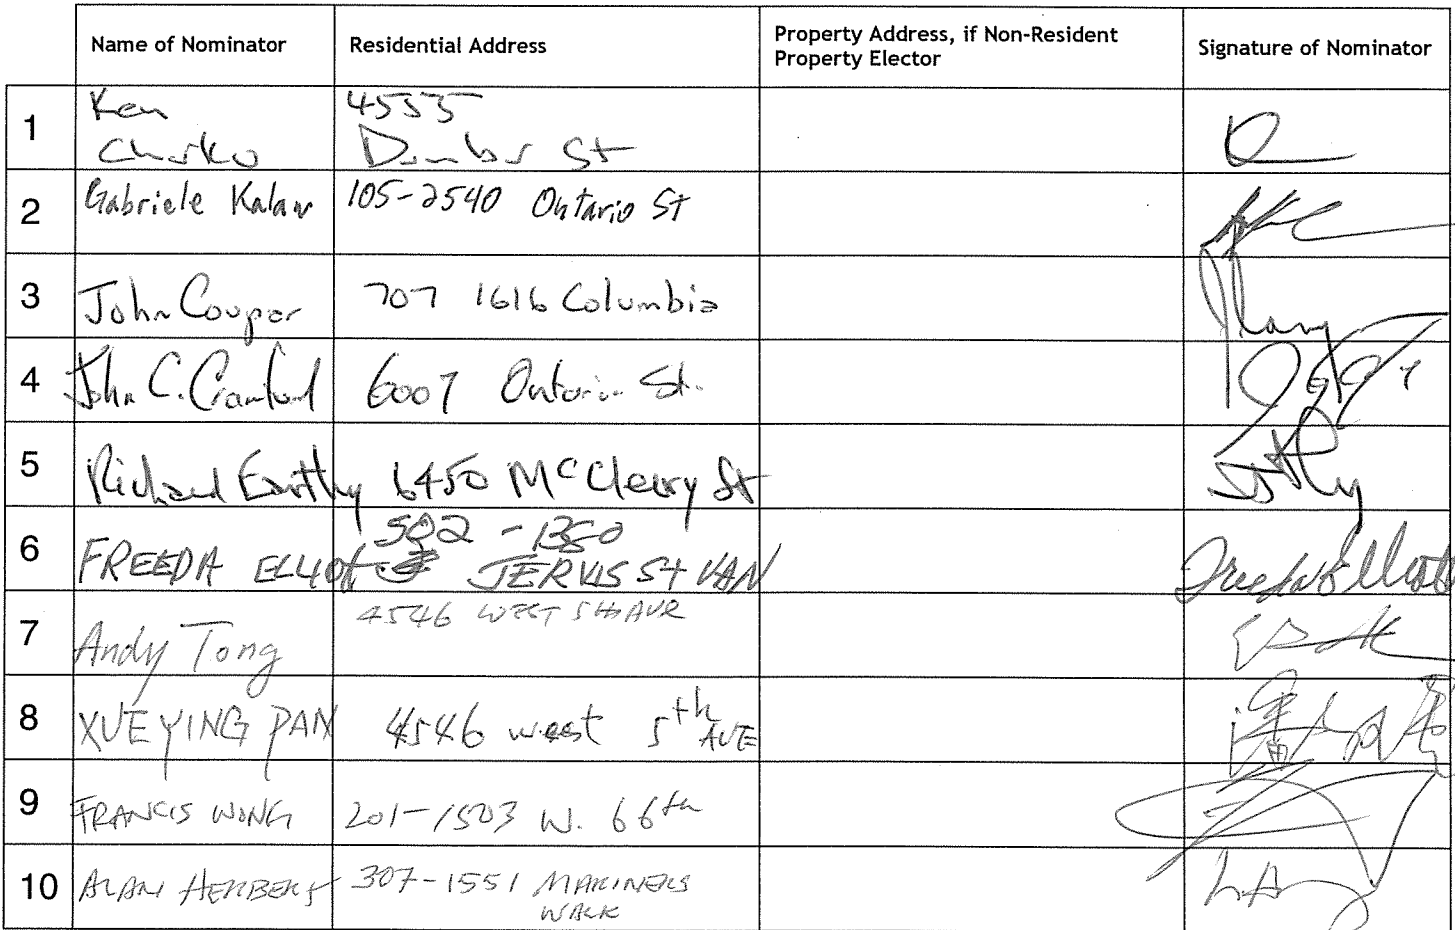 Name of Nominator
Residential Address
Property Address, if Non-Resident
Property Elector
Signature of Nominator
1
Ken
Charko
4555
Dunbar St
2
Gabriele Kalaw
105-2540 Ontario St
3
John Coupar
707 1616 Columbia
4
John C. Crawford
6007 Ontario St.
5
Richard Earthy
6450 McCleery St
6
FREEDA ELLIOT
502 - 1350
JERVIS St VAN
Freeda Elliott
7
Andy Tong
4546 WEST 5th AVE
8
XUE YING PAN
4546 west 5th AVE
9
FRANCIS WONG
201-1503 W. 66th
10
ALAN HERBERT
307-1551 MARINERS
WALK